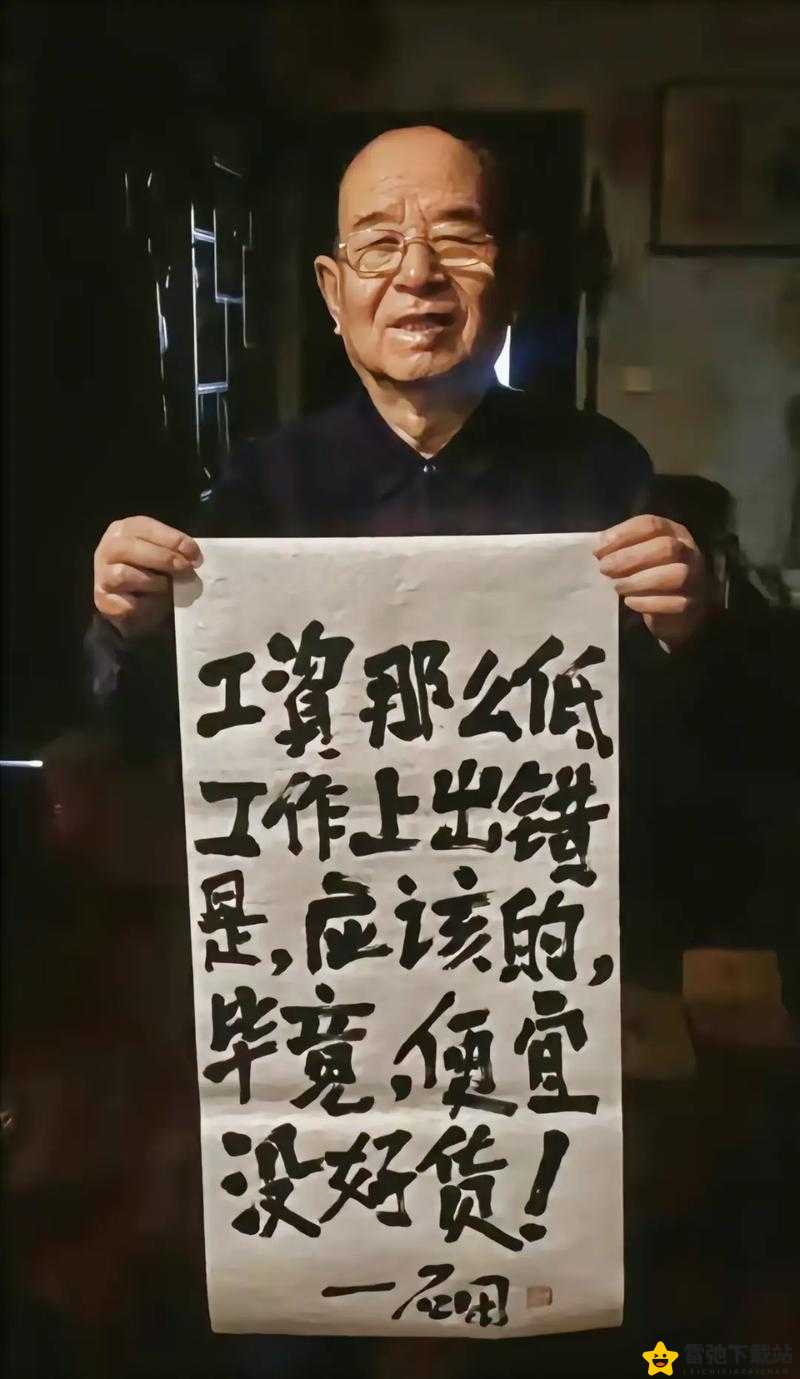 工資那么低
工作上出错
是,应该的,
毕竟,便宜
没好货!
雷弛下载站
LEICHIXIAZAIZHAN